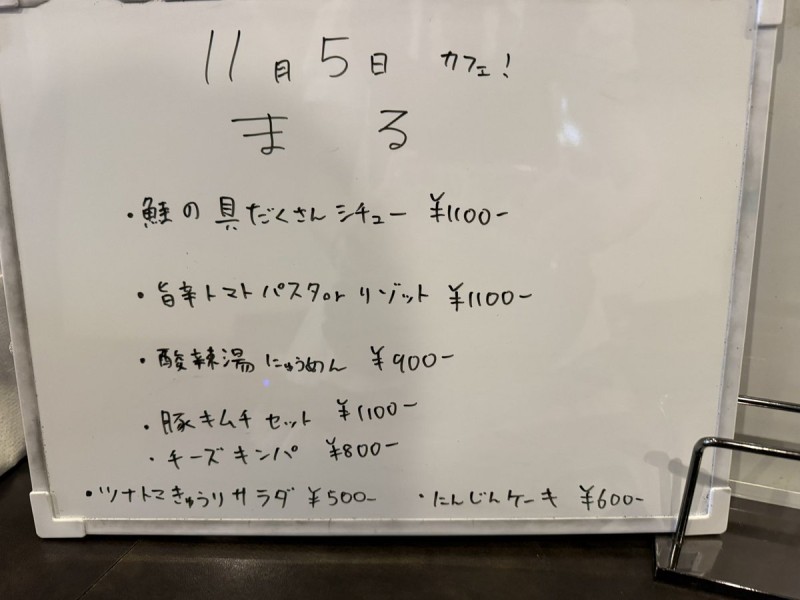 11月5日 カフェ!
まる
・鮭の具だくさんシチュー ¥1100-
・旨辛トマトパスタor リゾット ¥1100-
・酸辣湯にゅうめん ¥900-
・豚キムチセット ¥1100-
・チーズキンパ ¥800-
・ツナトマきゅうりサラダ ¥500- ・にんじんケーキ ¥600-